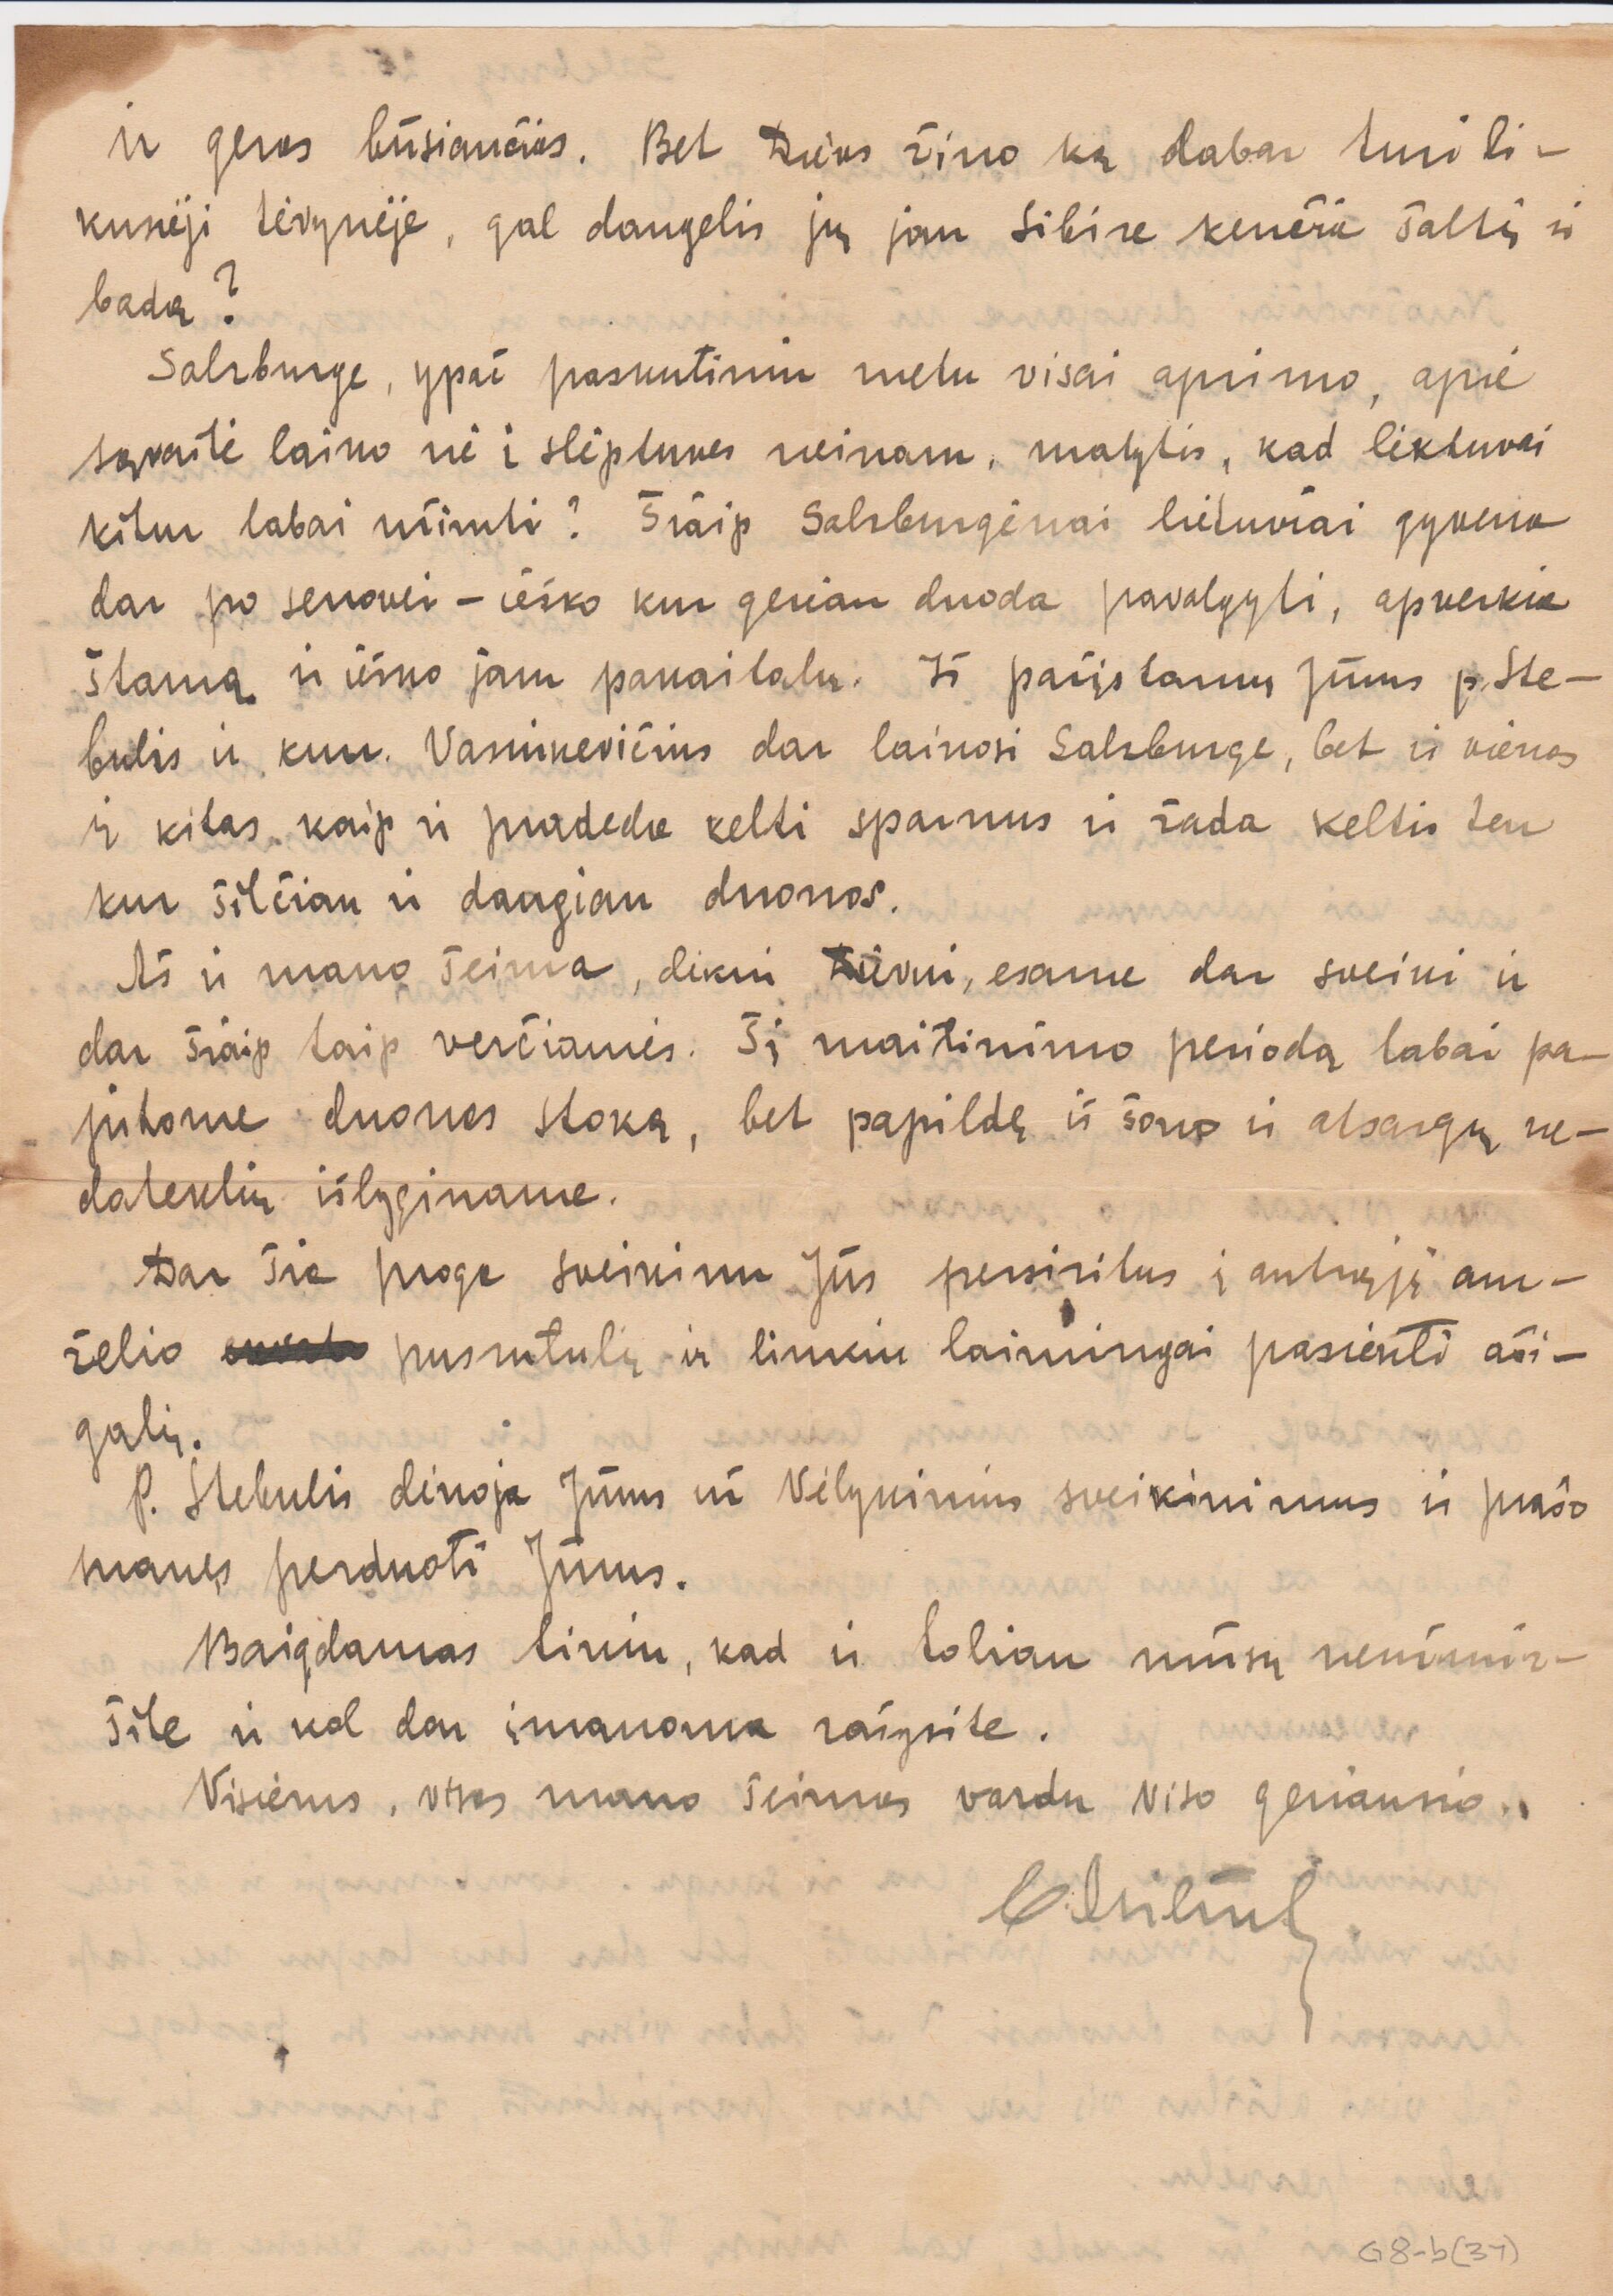 ir geros būsiančios. Bet Dievas žino ką dabar turi li-
kusieji tėvynėje, gal daugelis jų jau Sibire kenčia šaltį ir
badą?
Salzburge, ypač paskutiniu metu visai aprimo, apie
savaitė laiko nė į slėptuves neinam, matytis, kad lėktuvai
kitur labai užimti? Šiaip Salzburgėnai lietuviai gyvena
dar po senovei – ieško kur geriau duoda pavalgyti, apverkia
štamą ir ieško jam pavaitalų. Iš pažįstamų Jums p. Ste-
bulis ir kun. Vasiukevičius dar laikosi Salzburge, bet ir vienas
ir kitas kaip ir pradeda kelti sparnus ir žada keltis ten
kur šilčiau ir daugiau duonos.
Aš ir mano šeima, dėkui Dievui, esame dar sveiki ir
dar šiaip taip verčiamės. Šį maitinimo periodą labai pa-
jutome duonos stoką, bet papildę iš šono ir atsargų ne-
dateklių išlyginame.
Dar šia proga sveikinu Jūs persiritus į antrąjį am-
želio pusrutulį ir linkiu laimingai pasiekti aši-
galį.
P. Stebulis dėkoja Jums už Velykinius sveikinimus ir prašo
manęs perduoti Jums.
Baigdamas tikiu, kad ir toliau mūsų neužmir-
šite ir kol dar įmanoma rašysite.
Visiems, visos mano šeimos vardu viso geriausio.
G8-b(37)